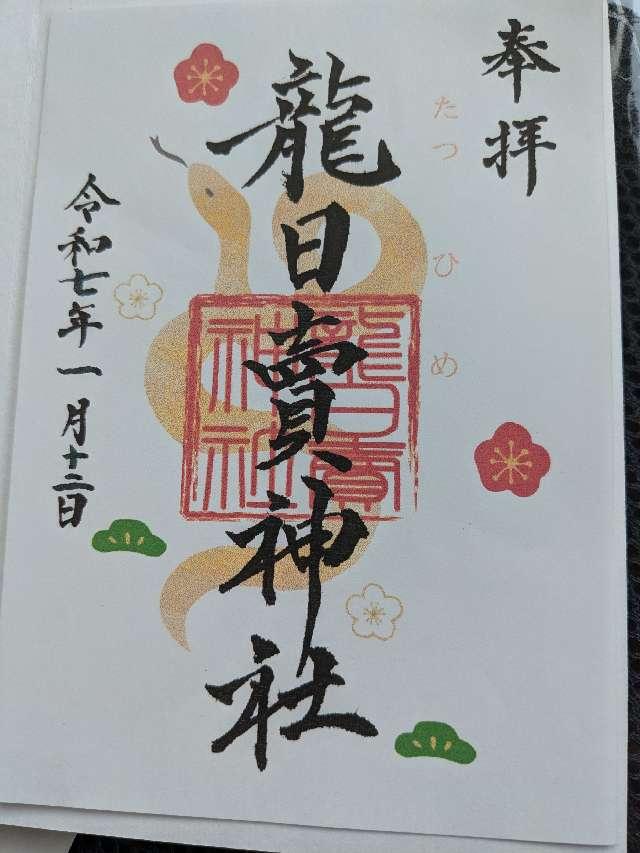 奉拝
たつひめ
龍日賣神社
龍日賣
神社
令和七年一月十二日